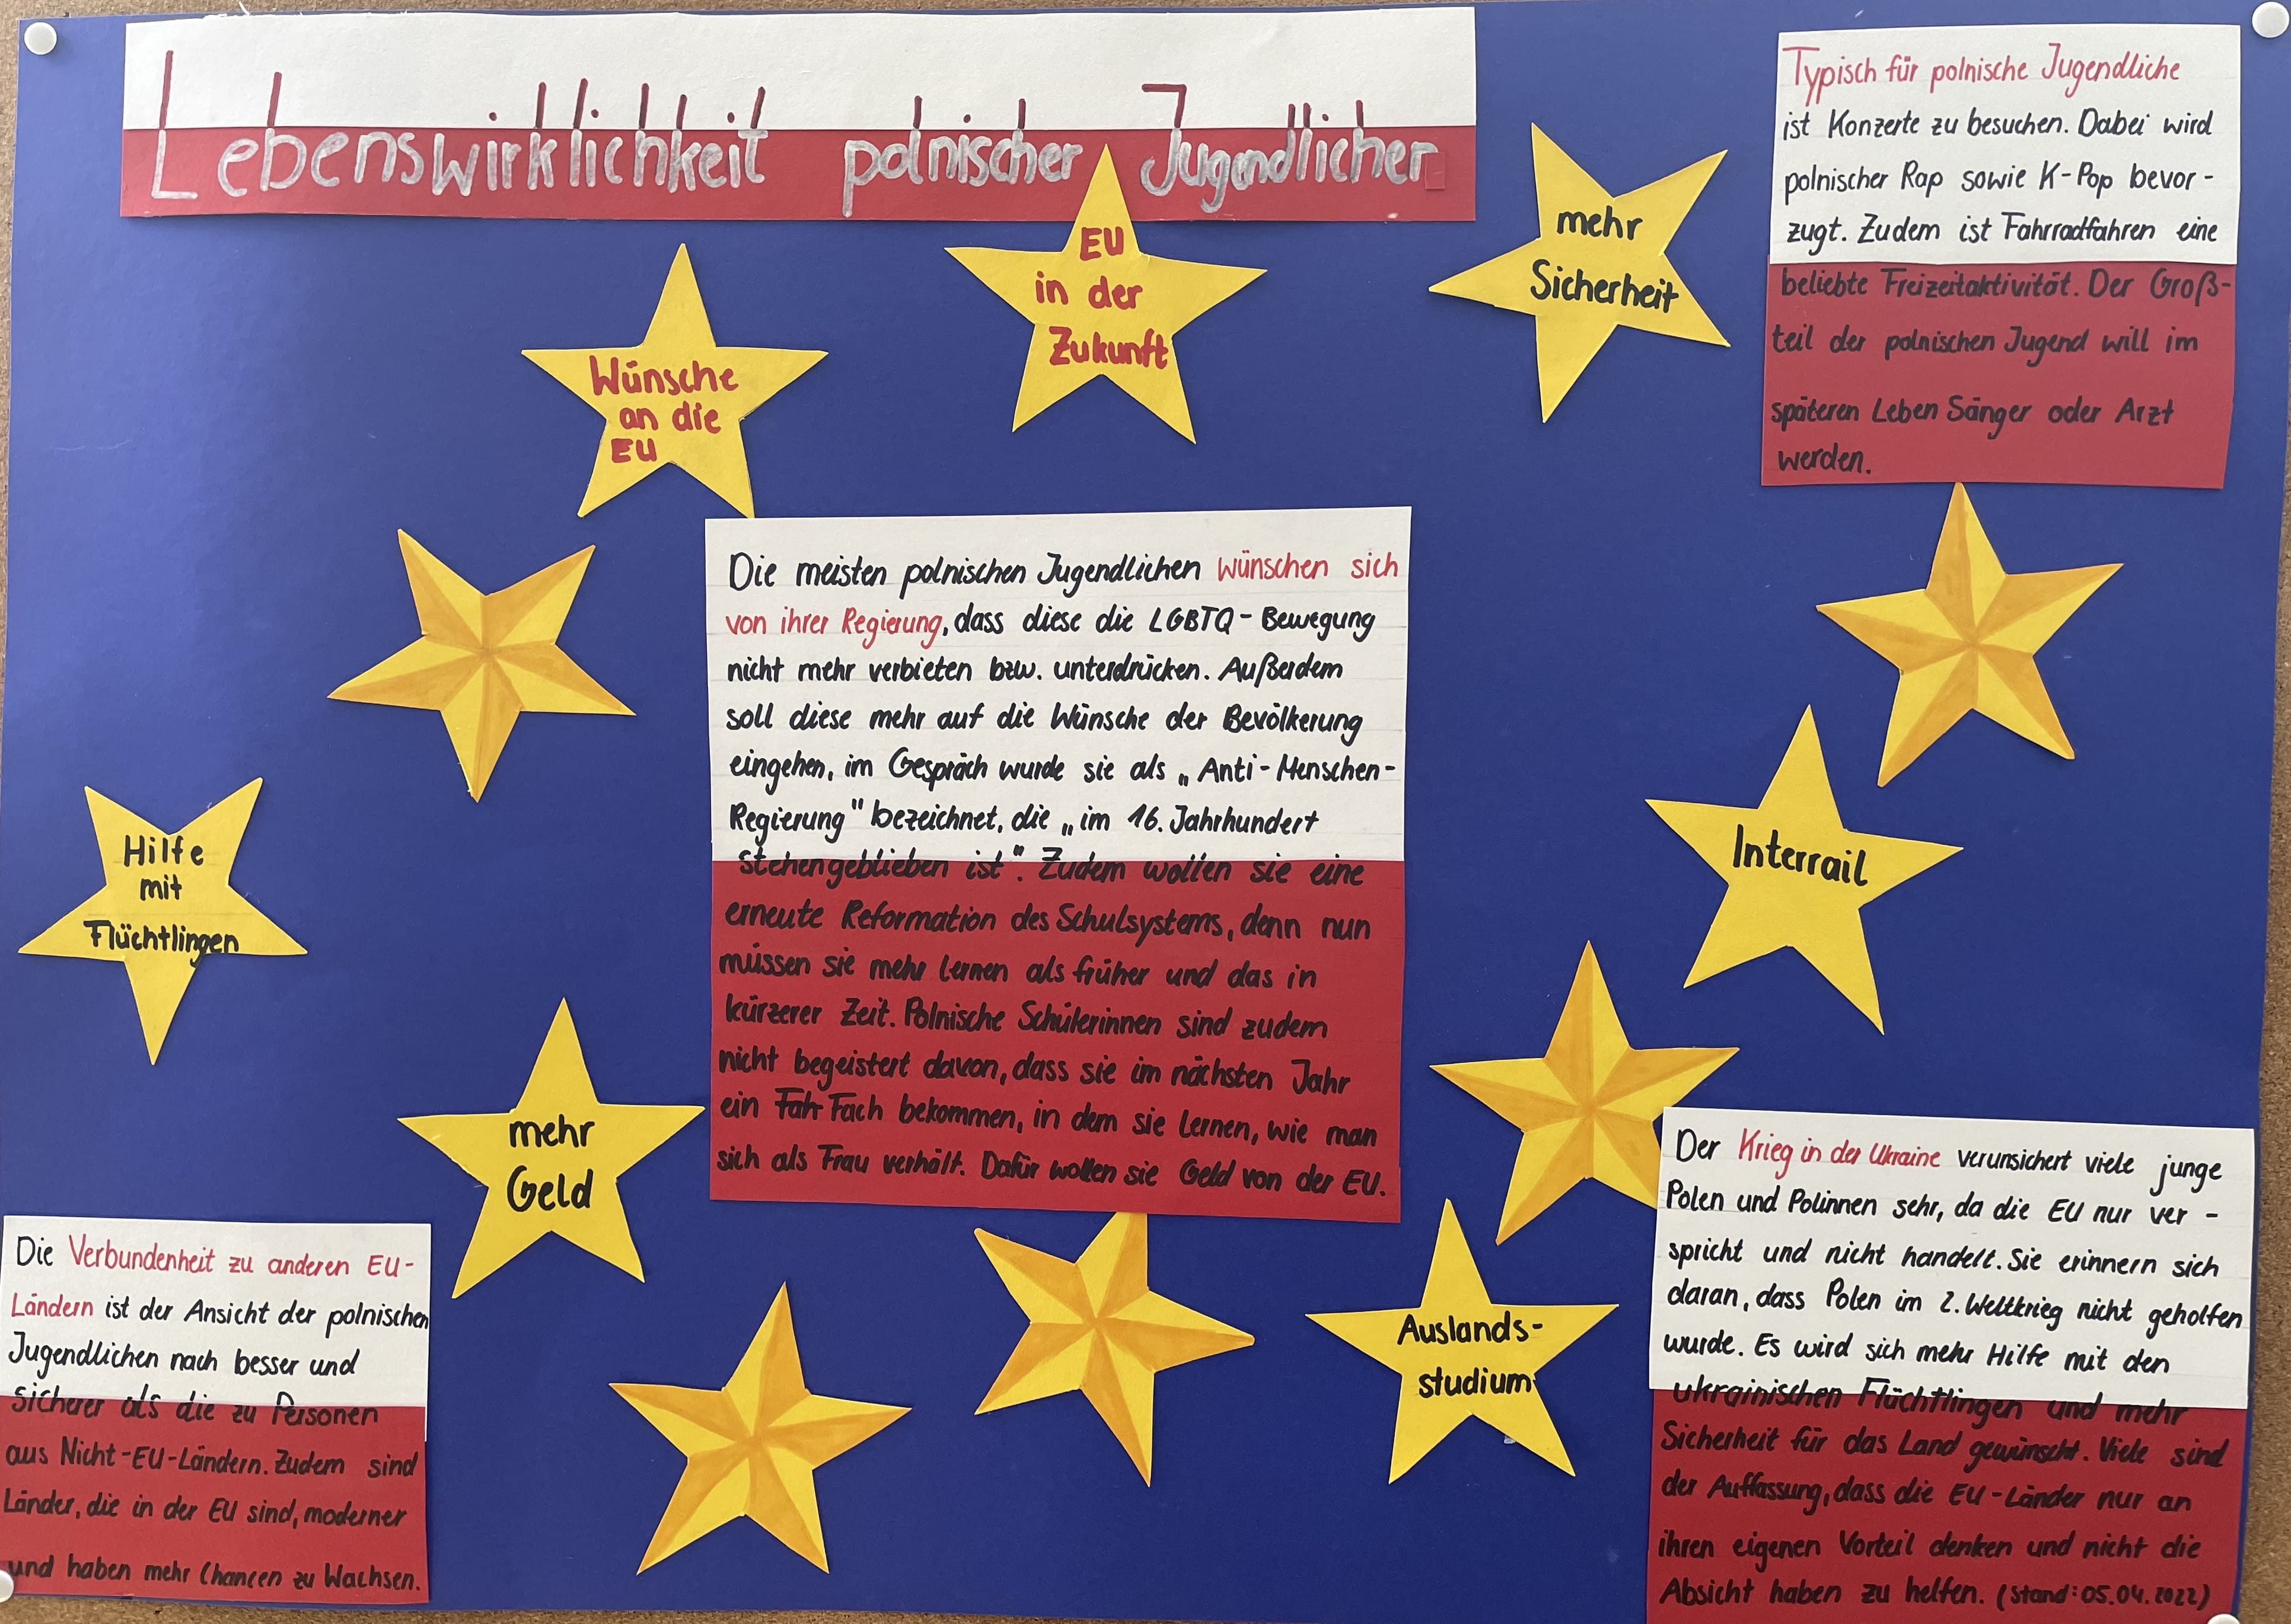 Lebenswirklichkeit polnischer Jugendlicher
Wünsche
an die
EU
EU
in der
Zukunft
mehr
Sicherheit
Typisch für polnische Jugendliche
ist Konzerte zu besuchen. Dabei wird
polnischer Rap sowie K-Pop bevor-
zugt. Zudem ist Fahrradfahren eine
beliebte Freizeitaktivität. Der Groß-
teil der polnischen Jugend will im
späteren Leben Sänger oder Arzt
werden.
Die meisten polnischen Jugendlichen wünschen sich
von ihrer Regierung, dass diese die LGBTQ-Bewegung
nicht mehr verbieten bzw. unterdrücken. Außerdem
soll diese mehr auf die Wünsche der Bevölkerung
eingehen, im Gespräch wurde sie als „Anti-Menschen-
Regierung" bezeichnet, die „im 16. Jahrhundert
stehengeblieben ist". Zudem wollen sie eine
erneute Reformation des Schulsystems, denn nun
müssen sie mehr lernen als früher und das in
kürzerer Zeit. Polnische Schülerinnen sind zudem
nicht begeistert davon, dass sie im nächsten Jahr
ein Fah Fach bekommen, in dem sie lernen, wie man
sich als Frau verhält. Dafür wollen sie Geld von der EU.
Hilfe
mit
Flüchtlingen
mehr
Geld
Interrail
Auslands-
studium
Die Verbundenheit zu anderen EU-
Ländern ist der Ansicht der polnischen
Jugendlichen nach besser und
sicherer als die zu Personen
aus Nicht-EU-Ländern. Zudem sind
Länder, die in der EU sind, moderner
und haben mehr Chancen zu Wachsen.
Der Krieg in der Ukraine verunsichert viele junge
Polen und Polinnen sehr, da die EU nur ver-
spricht und nicht handelt. Sie erinnern sich
daran, dass Polen im 2. Weltkrieg nicht geholfen
wurde. Es wird sich mehr Hilfe mit den
ukrainischen Flüchtlingen und mehr
Sicherheit für das Land gewünscht. Viele sind
der Auffassung, dass die EU-Länder nur an
ihren eigenen Vorteil denken und nicht die
Absicht haben zu helfen. (Stand: 05.04.2022)